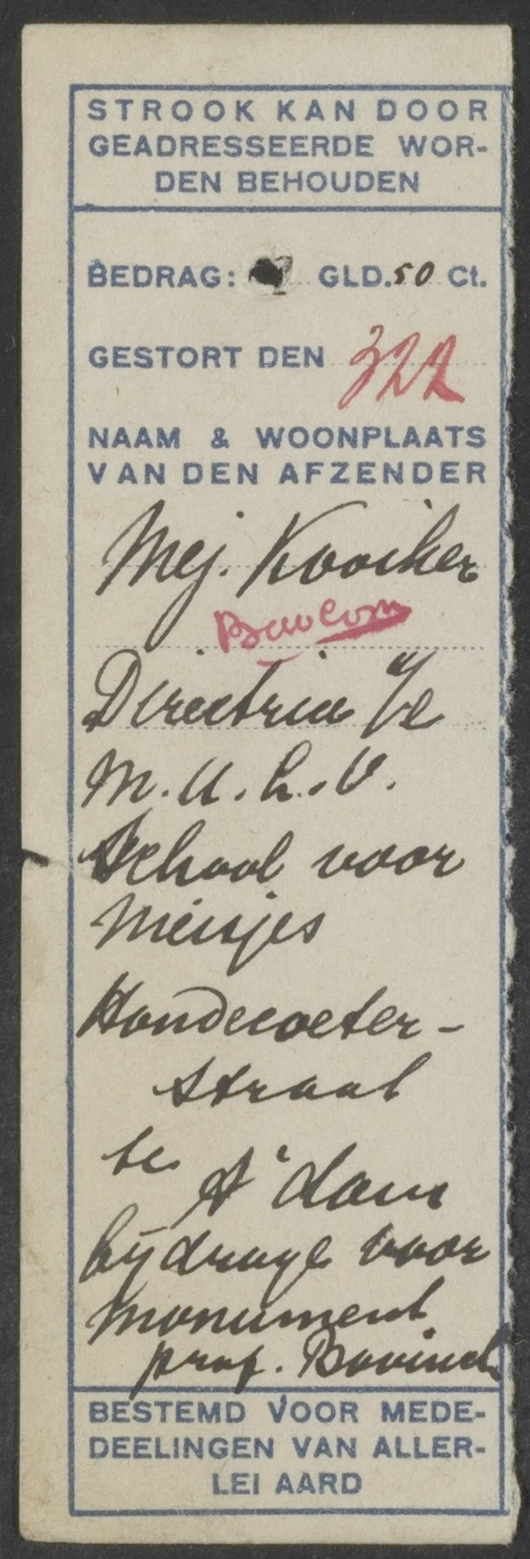 STROOK KAN DOOR
GEADRESSEERDE WOR-
DEN BEHOUDEN
BEDRAG: GLD. 50 Ct.
GESTORT DEN 322
NAAM & WOONPLAATS
VAN DEN AFZENDER
Mej. Kooiker
Directrice 7e
M.U.L.O.
School voor
Meisjes
Hondecoeter-
straat
te A'dam
bijdrage voor
monument
prof. Bavinck
BESTEMD VOOR MEDE-
DEELINGEN VAN ALLER-
LEI AARD